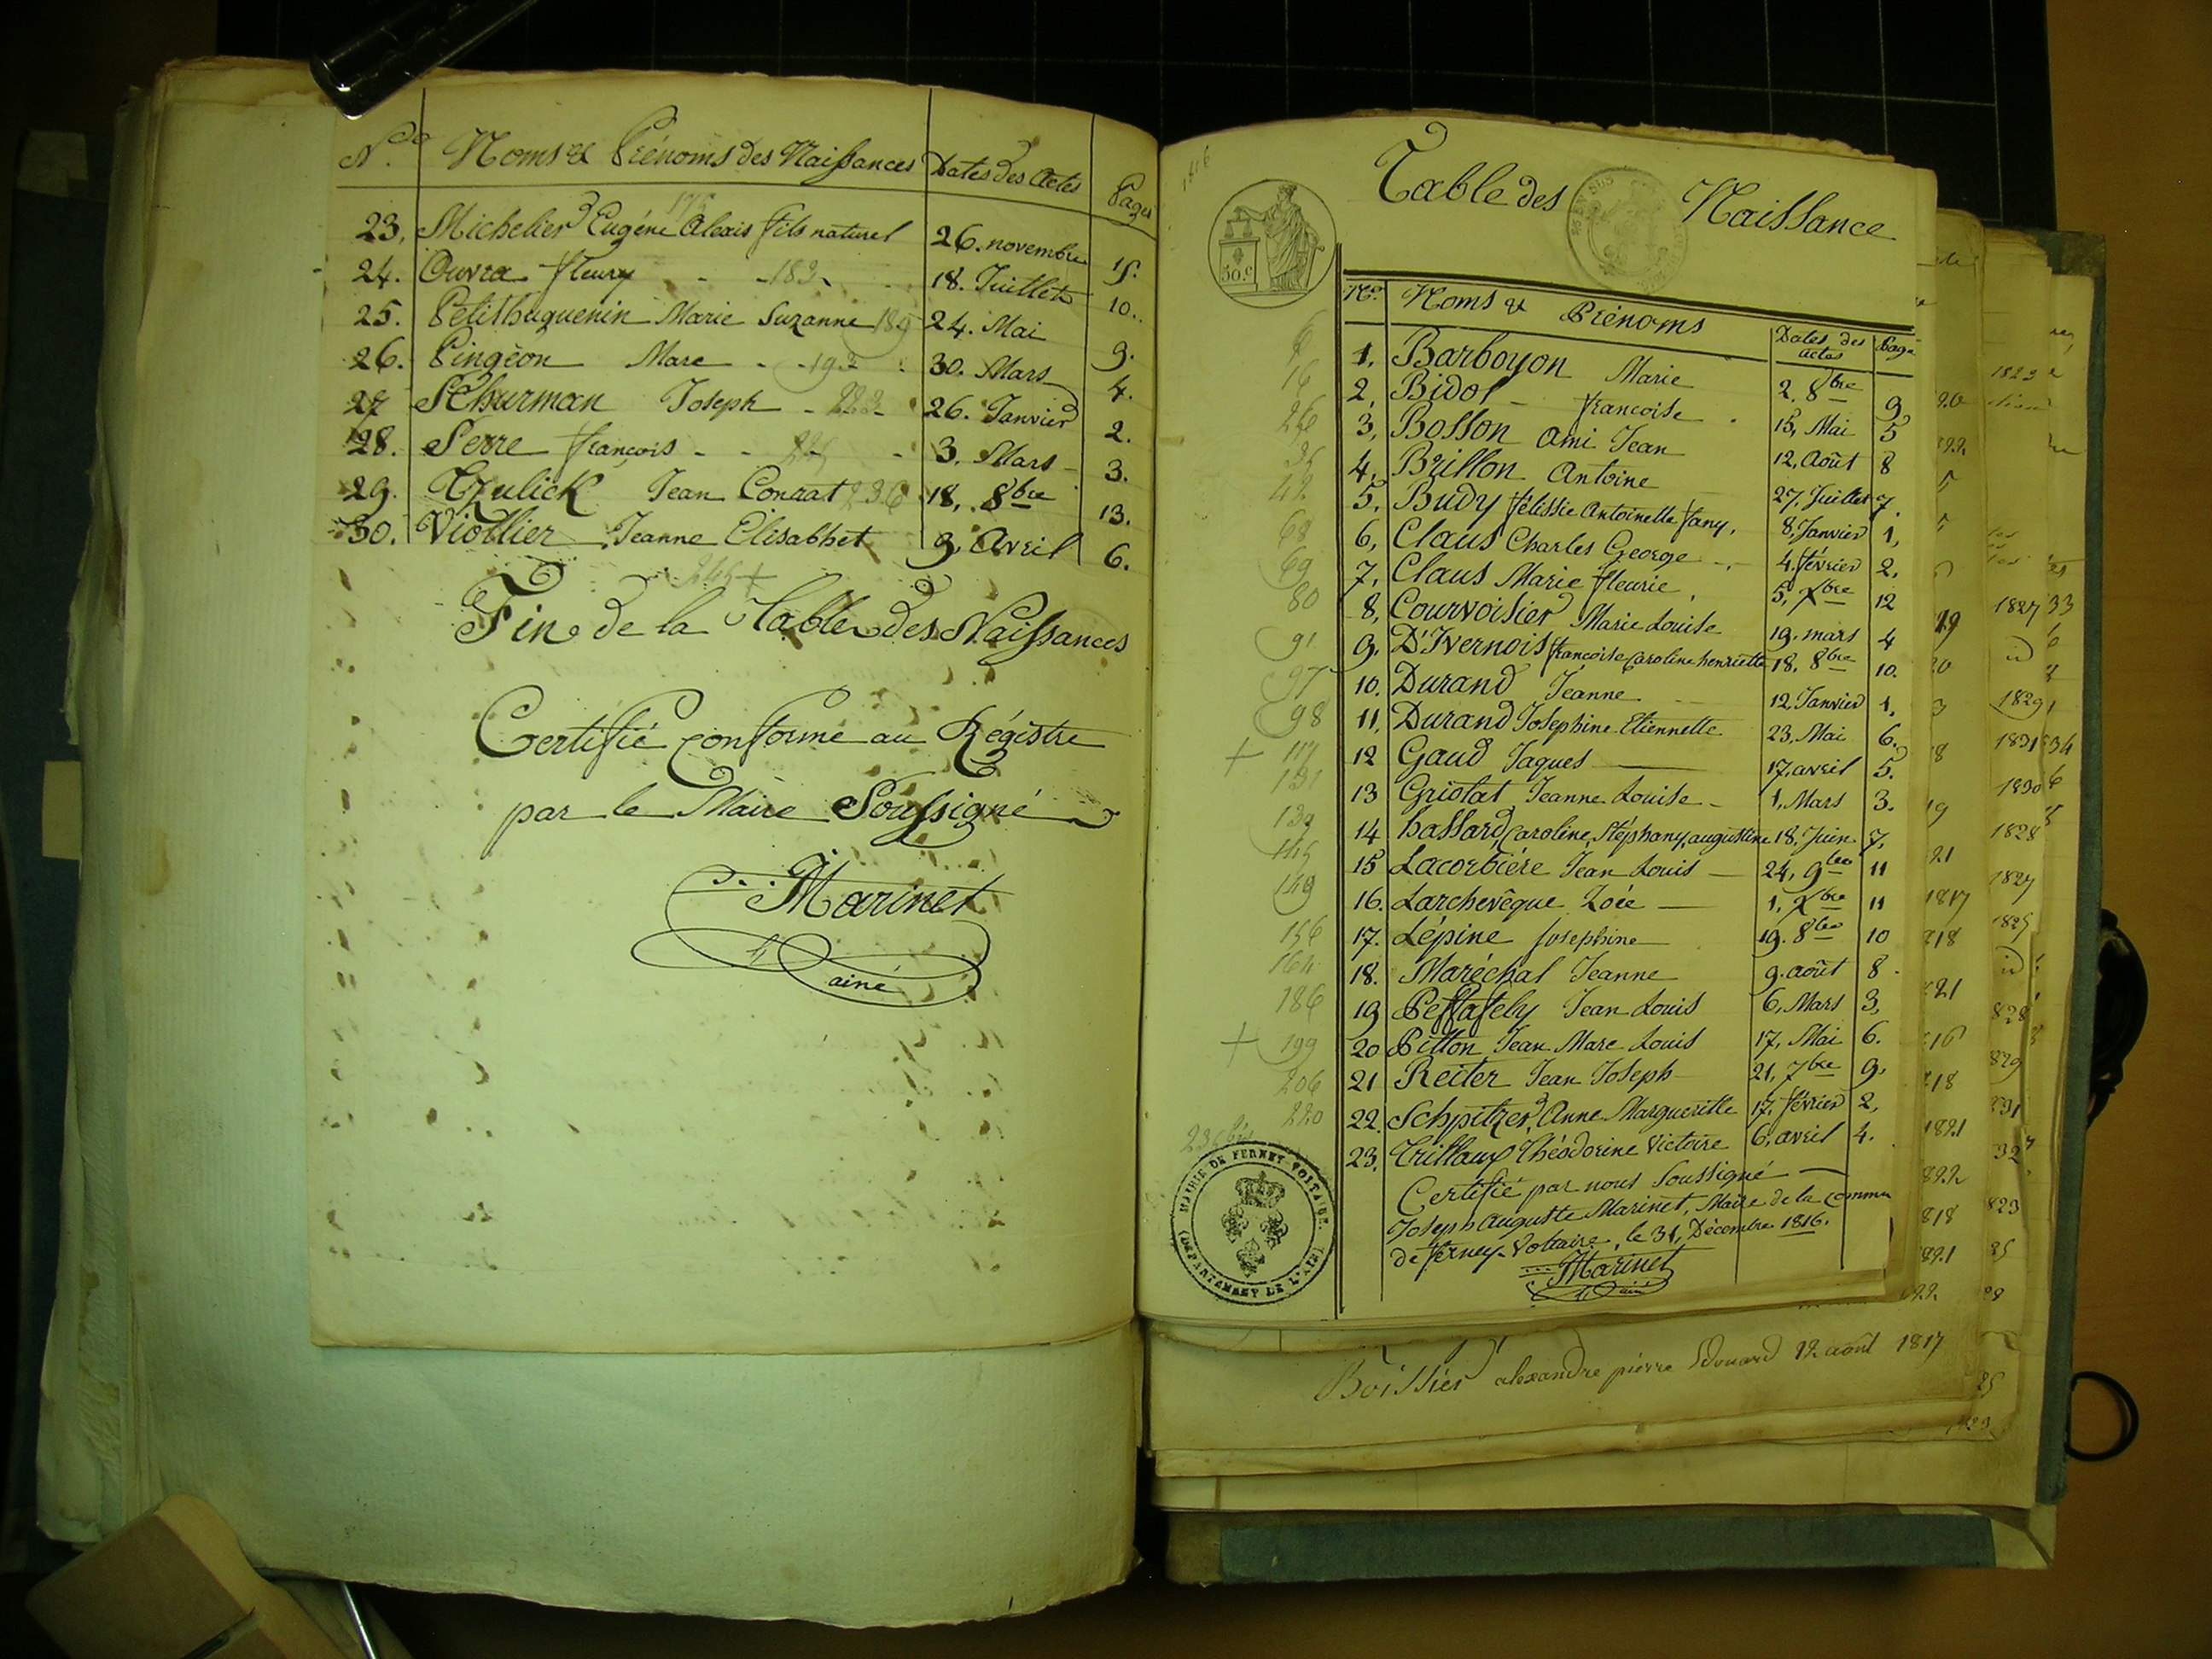 N.º de Noms & Prénoms des Naissances Dates des Actes Pages
23. Michelier Eugéne Alexis fils naturel 26. novembre 15.
24. Ouvra fleury 182 18. Juillet 10.
25. Petithuguenin Marie Suzanne 189 24. Mai 9.
26. Pingeon Marc 192 30. Mars 4.
27 Schurman Joseph 223 26. Janvier 2.
28. Serre françois 3. Mars 3.
29. Tzulick Jean Conrat 236 18, 8bre 13.
30. Viollier Jeanne Elisabhet 9, Avril 6.
245 +
Fin de la Table des Naissances
Certifié conforme au Régistre
par le Maire Soussigné
Marinet
ainé
1816
Table des Naissance
50.c
N.º Noms & Prénoms Dates des actes Page
1, Barboyon Marie 2. 8bre 9,
16 2, Bidol francoise 15, Mai 5
26 3, Bosson Ami Jean 12, Août 8
35 4, Brillon Antoine 27, Juillet 7.
42 5, Budy félissie Antoinette fany, 8, Janvier 1,
68 6, Claus Charles George 4, février 2.
69 7, Claus Marie fleurie, 5, Xbre 12
80 8, Courvoisier Marie Louise 19. mars 4
91 9, D'Ivernois francoise Caroline henriette 18, 8bre 10.
97 10. Durand Jeanne 12, Janvier 1,
98 11, Durand Josephine Etiennette 23, Mai 6.
+ 117 12 Gaud Jaques 17, avril 5.
131 13 Griotat Jeanne Louise 1, Mars 3.
139 14 hassard, Caroline, Stéphany, augustine 18, Juin 7,
145 15 Lacorbière Jean Louis 24, 9bre 11
149 16. Larchevêque Zoée 1, Xbre 11
156 17. Lépine Josephine 19. 8bre 10
164 18. Maréchal Jeanne 9. août 8
186 19 Pessately Jean Louis 6, Mars 3,
+ 199 20 Pitton Jean Marc Louis 17, Mai 6.
206 21 Reiter Jean Joseph 21, 7bre 9,
220 22. Schpitzer, Anne Margueritte 17, février 2,
235 bis 23, Trillaux Théodorine Victoire 6, avril 4.
Certifié par nous Soussigné
Joseph Auguste Marinet, Maire de la Commu
de ferney-Voltaire, le 31, Décembre 1816.
Marinet
ainé
MAIRIE DE FERNEY VOLTAIRE
(DÉPARTEMENT DE L'AIN)
Boissier alexandre pierre Edouard 12 août 1817